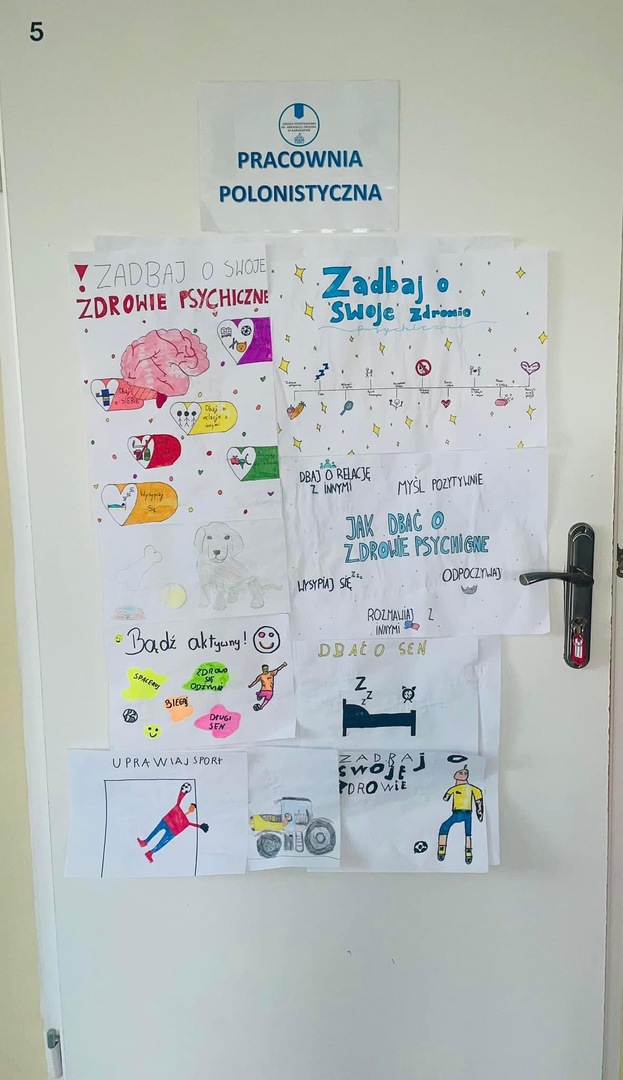 5
PRACOWNIA
POLONISTYCZNA
! ZADBAJ O SWOJE
ZDROWIE PSYCHICZNE
Dbaj
o SIEBIE
Dbaj o
relacje z
innymi
Wysypiaj
Się
Zadbaj o
swoje zdrowie
psychiczne
DBAJ O RELACJĘ
Z INNYMI
MYŚL POZYTYWNIE
JAK DBAĆ O
ZDROWIE PSYCHIGNE
WYSYPIAJ SIĘ zzz
ODPOCZYWAJ
ROZMAWIAJ Z
INNYMI
Bądź aktywny!
SPACERUJ
ZDROWO
SIĘ
ODŻYWIAJ
BIEGAJ
DŁUGI
SEN
DBAĆ O SEN
Z
z z
UPRAWIAJ SPORT
ZADBAJ O
SWOJE
ZDROWIE